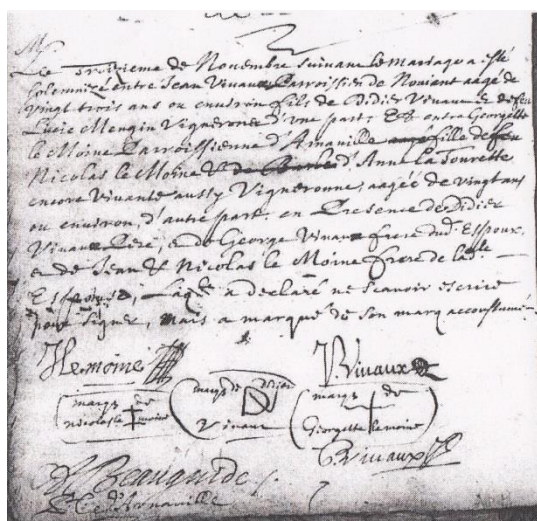 M.
Le troizieme de Novembre suivant le mariage a esté
solemnizé entre Jean Vivaux Parroissien de Noviant aagé de
vingt trois ans ou environ fils de Didier Vivaux & de feu
Lucie Mengin Vignerons d'une part, Et entre Georgette
le Moine Parroissienne d'Arnaville fille de feu
Nicolas le Moine & d'Anne La Tourette
encore vivante aussy Vigneronne, aagée de vingt ans
ou environ, d'autre part, en Presence de Didier
Vivaux Pere, & de George Vivaux frere dud. Espoux,
& de Jean & Nicolas le Moine frere de lad.
Espouse, Laq.le a declaré ne scavoir escrire
pour signer, mais a marqué de son marq accoustumé
J le moine
Vivaux
marq de
nicolas le moine
marq de didier
Vivaux
marq de
Georgette le moine
G Vivaux
Beauguide
C. d'Arnaville